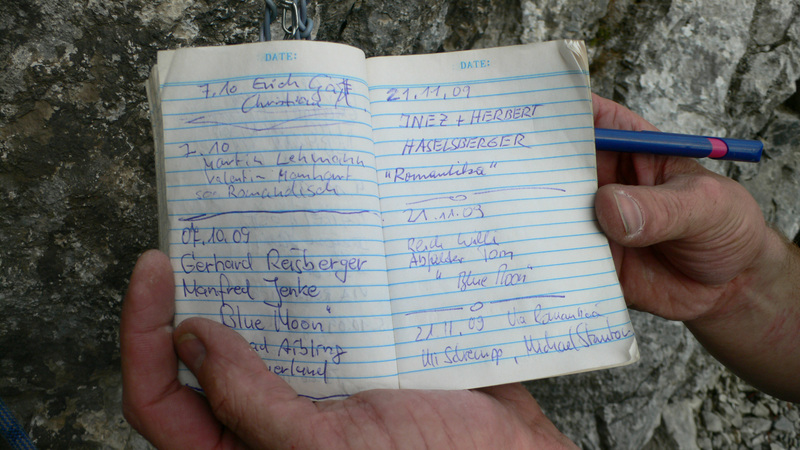 DATE:
7.10 Erich
Christian
7.10
Martin Lehmann
Valentin
so Romandisch
07.10.09
Gerhard Reisberger
Manfred Jenke
"Blue Moon"
Aibling
DATE:
21.11.09
INEZ + HERBERT
HASELSBERGER
"Romantika"
21.11.09
Willi
Tom
"Blue Moon"
21.11.09 Via Romantica
Uli Schrempp, Michael